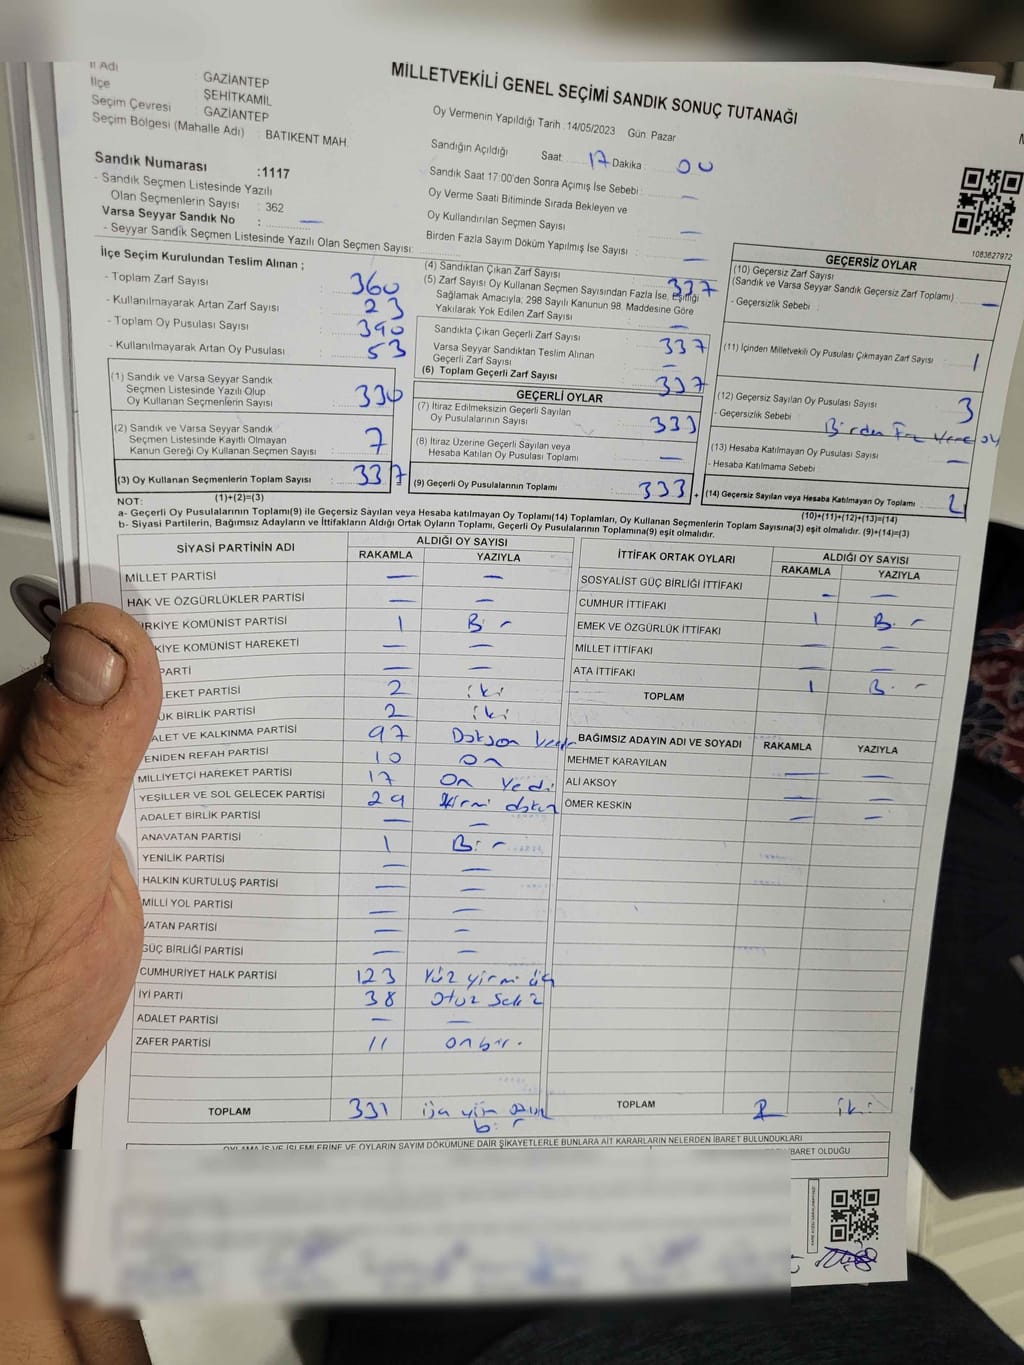 İl Adı
GAZİANTEP
İlçe
ŞEHİTKAMİL
Seçim Çevresi
GAZİANTEP
Seçim Bölgesi (Mahalle Adı) : BATIKENT MAH.
MİLLETVEKİLİ GENEL SEÇİMİ SANDIK SONUÇ TUTANAĞI
Oy Vermenin Yapıldığı Tarih :14/05/2023 Gün: Pazar
Sandığın Açıldığı Saat: 17 Dakika: 00
Sandık Saat 17:00'den Sonra Açımış İse Sebebi : —
Oy Verme Saati Bitiminde Sırada Bekleyen ve
Oy Kullandırılan Seçmen Sayısı : —
Birden Fazla Sayım Döküm Yapılmış İse Sayısı : —
Sandık Numarası :1117
- Sandık Seçmen Listesinde Yazılı
Olan Seçmenlerin Sayısı : 362
Varsa Seyyar Sandık No : —
- Seyyar Sandık Seçmen Listesinde Yazılı Olan Seçmen Sayısı:
1083627972
İlçe Seçim Kurulundan Teslim Alınan ;
- Toplam Zarf Sayısı : 360
- Kullanılmayarak Artan Zarf Sayısı : 23
- Toplam Oy Pusulası Sayısı : 390
- Kullanılmayarak Artan Oy Pusulası : 53
(1) Sandık ve Varsa Seyyar Sandık
Seçmen Listesinde Yazılı Olup
Oy Kullanan Seçmenlerin Sayısı : 330
(2) Sandık ve Varsa Seyyar Sandık
Seçmen Listesinde Kayıtlı Olmayan
Kanun Gereği Oy Kullanan Seçmen Sayısı : 7
(3) Oy Kullanan Seçmenlerin Toplam Sayısı : 337
(1)+(2)=(3)
(4) Sandıktan Çıkan Zarf Sayısı : 337
(5) Zarf Sayısı Oy Kullanan Seçmen Sayısından Fazla İse, Eşitliği
Sağlamak Amacıyla; 298 Sayılı Kanunun 98. Maddesine Göre
Yakılarak Yok Edilen Zarf Sayısı : —
Sandıkta Çıkan Geçerli Zarf Sayısı : 337
Varsa Seyyar Sandıktan Teslim Alınan
Geçerli Zarf Sayısı : —
(6) Toplam Geçerli Zarf Sayısı : 337
GEÇERLİ OYLAR
(7) İtiraz Edilmeksizin Geçerli Sayılan
Oy Pusulalarının Sayısı : 333
(8) İtiraz Üzerine Geçerli Sayılan veya
Hesaba Katılan Oy Pusulası Toplamı : —
(9) Geçerli Oy Pusulalarının Toplamı : 333 +
GEÇERSİZ OYLAR
(10) Geçersiz Zarf Sayısı
(Sandık ve Varsa Seyyar Sandık Geçersiz Zarf Toplamı) : —
- Geçersizlik Sebebi :
(11) İçinden Milletvekili Oy Pusulası Çıkmayan Zarf Sayısı : 1
(12) Geçersiz Sayılan Oy Pusulası Sayısı : 3
- Geçersizlik Sebebi : Birden
(13) Hesaba Katılmayan Oy Pusulası Sayısı : —
- Hesaba Katılmama Sebebi :
(14) Geçersiz Sayılan veya Hesaba Katılmayan Oy Toplamı :
(10)+(11)+(12)+(13)=(14)
NOT:
a- Geçerli Oy Pusulalarının Toplamı(9) ile Geçersiz Sayılan veya Hesaba katılmayan Oy Toplamı(14) Toplamları, Oy Kullanan Seçmenlerin Toplam Sayısına(3) eşit olmalıdır. (9)+(14)=(3)
b- Siyasi Partilerin, Bağımsız Adayların ve İttifakların Aldığı Ortak Oyların Toplamı, Geçerli Oy Pusulalarının Toplamına(9) eşit olmalıdır.
SİYASİ PARTİNİN ADI ALDIĞI OY SAYISI
RAKAMLA YAZIYLA
MİLLET PARTİSİ — —
HAK VE ÖZGÜRLÜKLER PARTİSİ — —
RKİYE KOMÜNİST PARTİSİ 1 Bir
KİYE KOMÜNİST HAREKETİ — —
PARTİ — —
EKET PARTİSİ 2 iki
ÜK BİRLİK PARTİSİ 2 iki
ALET VE KALKINMA PARTİSİ 97 Doksan Yedi
ENİDEN REFAH PARTİSİ 10 On
MİLLİYETÇİ HAREKET PARTİSİ 17 On Yedi
YEŞİLLER VE SOL GELECEK PARTİSİ 29 Yirmi dokuz
ADALET BİRLİK PARTİSİ — —
ANAVATAN PARTİSİ 1 Bir
YENİLİK PARTİSİ — —
HALKIN KURTULUŞ PARTİSİ — —
MİLLİ YOL PARTİSİ — —
VATAN PARTİSİ — —
GÜÇ BİRLİĞİ PARTİSİ — —
CUMHURİYET HALK PARTİSİ 123 Yüz yirmi üç
İYİ PARTİ 38 Otuz Sekiz
ADALET PARTİSİ — —
ZAFER PARTİSİ 11 onbir.
TOPLAM 331
İTTİFAK ORTAK OYLARI ALDIĞI OY SAYISI
RAKAMLA YAZIYLA
SOSYALİST GÜÇ BİRLİĞİ İTTİFAKI — —
CUMHUR İTTİFAKI 1 Bir
EMEK VE ÖZGÜRLÜK İTTİFAKI — —
MİLLET İTTİFAKI — —
ATA İTTİFAKI 1 Bir
TOPLAM
BAĞIMSIZ ADAYIN ADI VE SOYADI RAKAMLA YAZIYLA
MEHMET KARAYILAN — —
ALİ AKSOY — —
ÖMER KESKİN — —
TOPLAM 2 iki
OYLAMA İŞ VE İŞLEMLERİNE VE OYLARIN SAYIM DÖKÜMÜNE DAİR ŞİKAYETLERLE BUNLARA AİT KARARLARIN NELERDEN İBARET BULUNDUKLARI
İBARET OLDUĞU